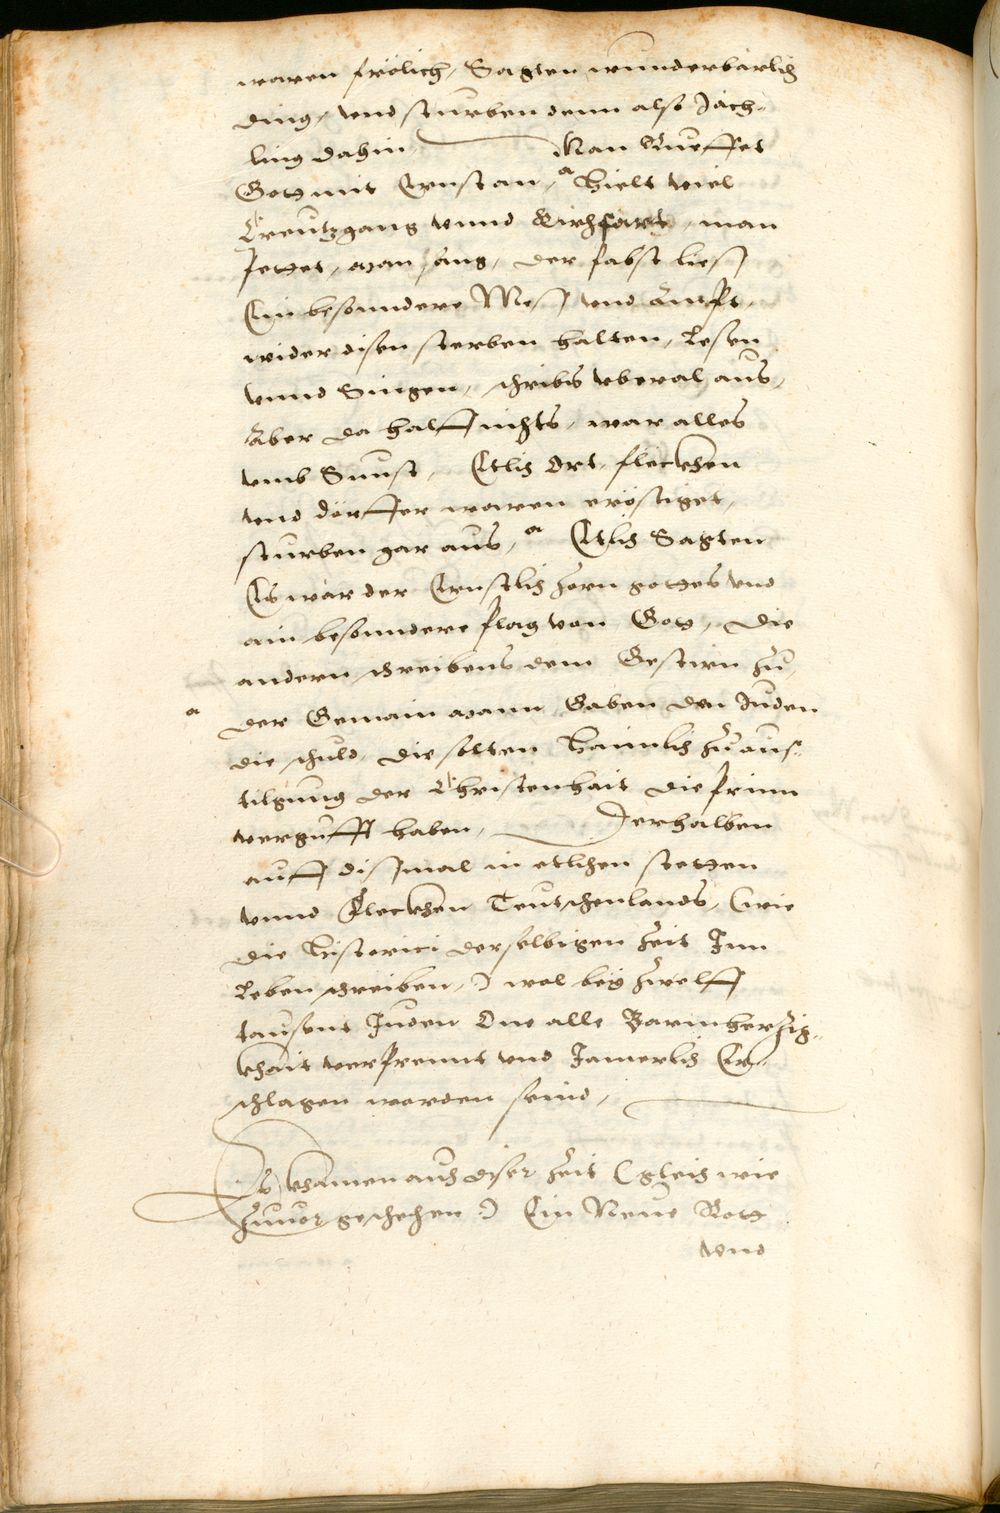 waren frölich, Sagten wunderbarlich
ding, vnd sturben denn also Jäch-
ling dahin, Man Rueffet
Gott mit Ernst an, a Hielt viel
Creutzgang vnnd Kirchfart, man
pettet, man sang, der Pabst liess
Ein besonndere Mess vnd Ampt,
wider disen sterben halten, Lesen
vnnd Singen, schribs vberal aus,
Aber da halff nichts, war alles
vmb Sunst, Etlich Ort, fleckhen
vnd dörffer waren erösiget,
sturben gar aus, a Etlich Sagten
Es wär der Ernstlich Zorn gottes vnd
ain besonndere plag von Gott, Die
andern schreibens dem Gestirn zu,
a
Der Gemain mann Gaben den Juden
die schuld, die solten Haimlich zu aus-
tilgung der Christenhait die prunn
vergufft haben, Derhalben
auff dissmal in etlichen stetten
vnnd Fleckhen Teutschenlands, (wie
die Historici derselbigen Zeit Inn
Leben schreiben,) wol bey zwelff
tausent Juden One alle Barmherzig-
khait verprennt vnd Jämerlich Er-
schlagen worden seind,
Es khamen auch diser Zeit (gleich wie
zuuor geschehen) Ein Neue Rott
vnd